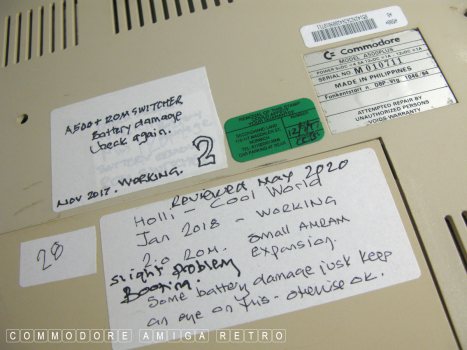 Commodore
MODEL A500PLUS
SERIAL NO. M010711
MADE IN PHILIPPINES
ATTEMPTED REPAIR BY
UNAUTHORIZED PERSONS
VOIDS WARRANTY
A500+ ROM SWITCHER
Battery damage
check again.
2
NOV 2017. WORKING.
Reviewed May 2020
Holli - Cool World
Jan 2018 - WORKING
2.0 ROM. Small AMRAM
expansion.
slight problem
Booting.
Some battery damage just keep
an eye on this - otherwise ok.
28
COMMODORE AMIGA RETRO